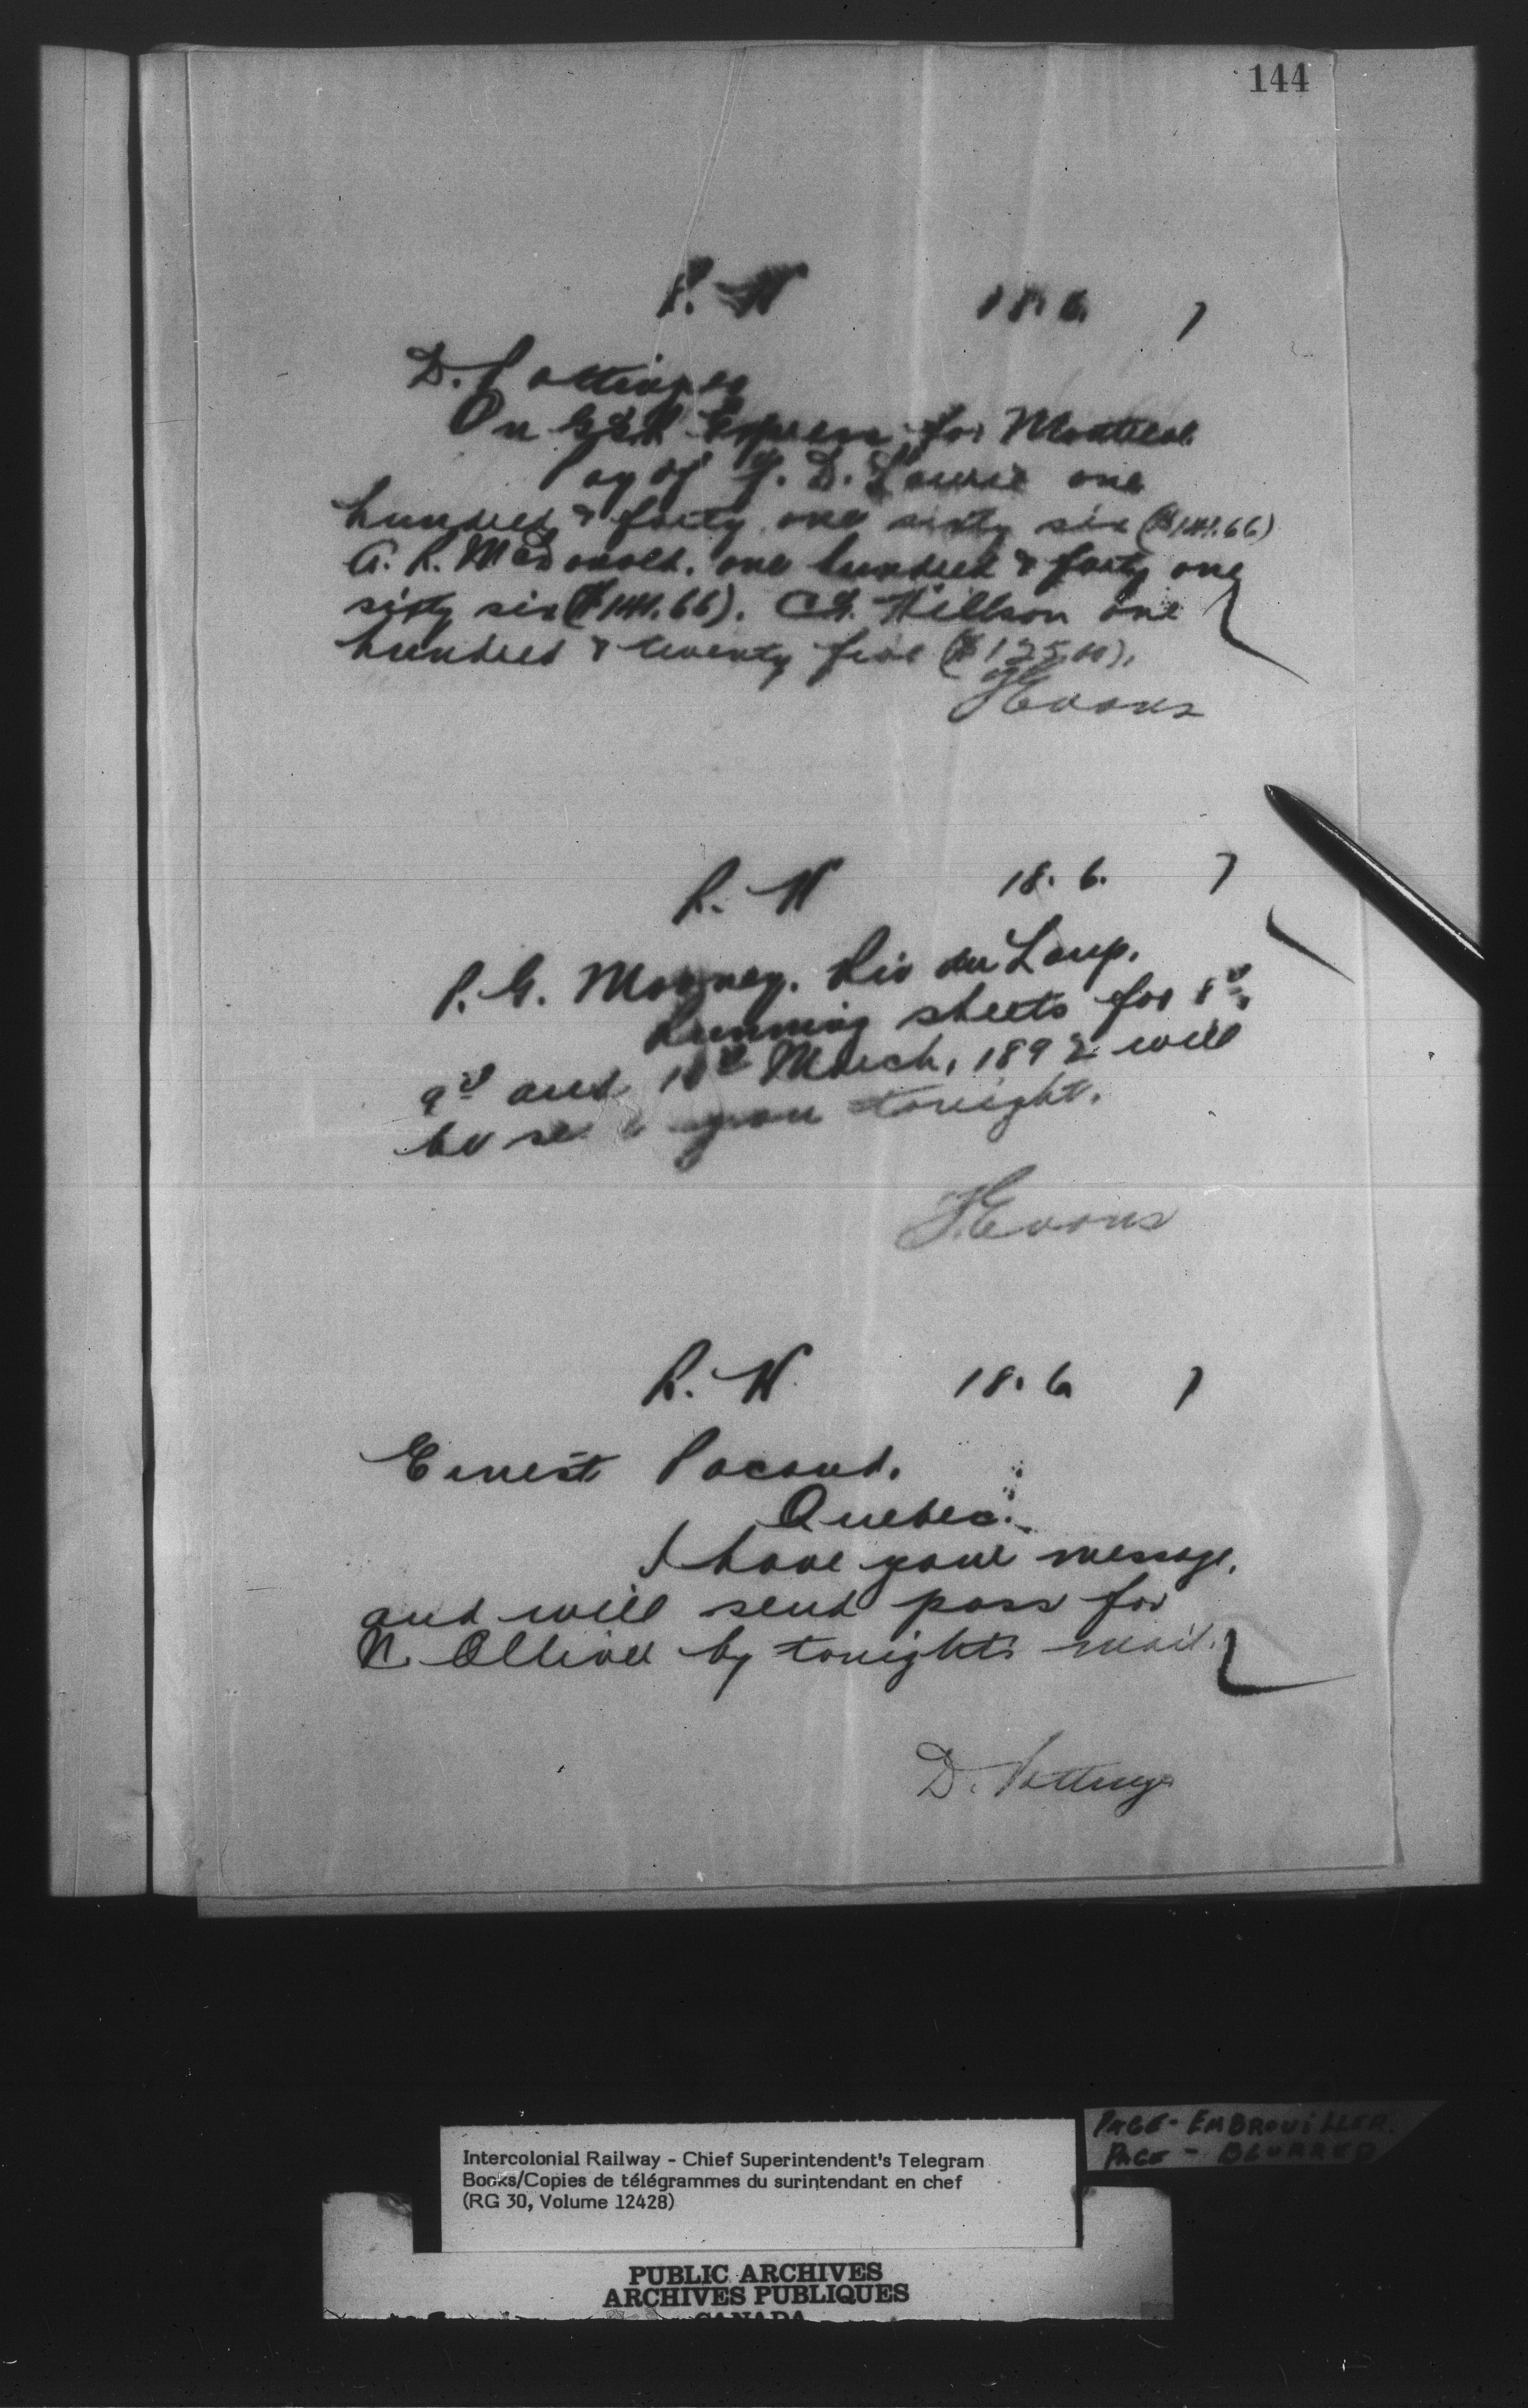 144
R. W 18. 6. 7
D. Pottinger
On Express for Montreal
Pay of Y. D. Lawrie one
hundred & forty one sixty six ($141.66)
A. R. McDonald. one hundred & forty one
sixty six ($141.66). Hillson one
hundred & twenty five ($125.00).
Evans
R. W 18. 6. 7
P. G. Mooney. Riv du Loup.
Running sheets for 8th,
9th and 10th March, 1892 will
be you tonight.
Evans
R. W 18. 6 7
Ernest Pacaud.
Quebec.
I have your message,
and will send pass for
N. Ollivier by tonights mail.
D. Pottinger
PAGE - EMBROUILLER.
PAGE - BLURRED
Intercolonial Railway - Chief Superintendent's Telegram
Books/Copies de télégrammes du surintendant en chef
(RG 30, Volume 12428)
PUBLIC ARCHIVES
ARCHIVES PUBLIQUES
CANADA